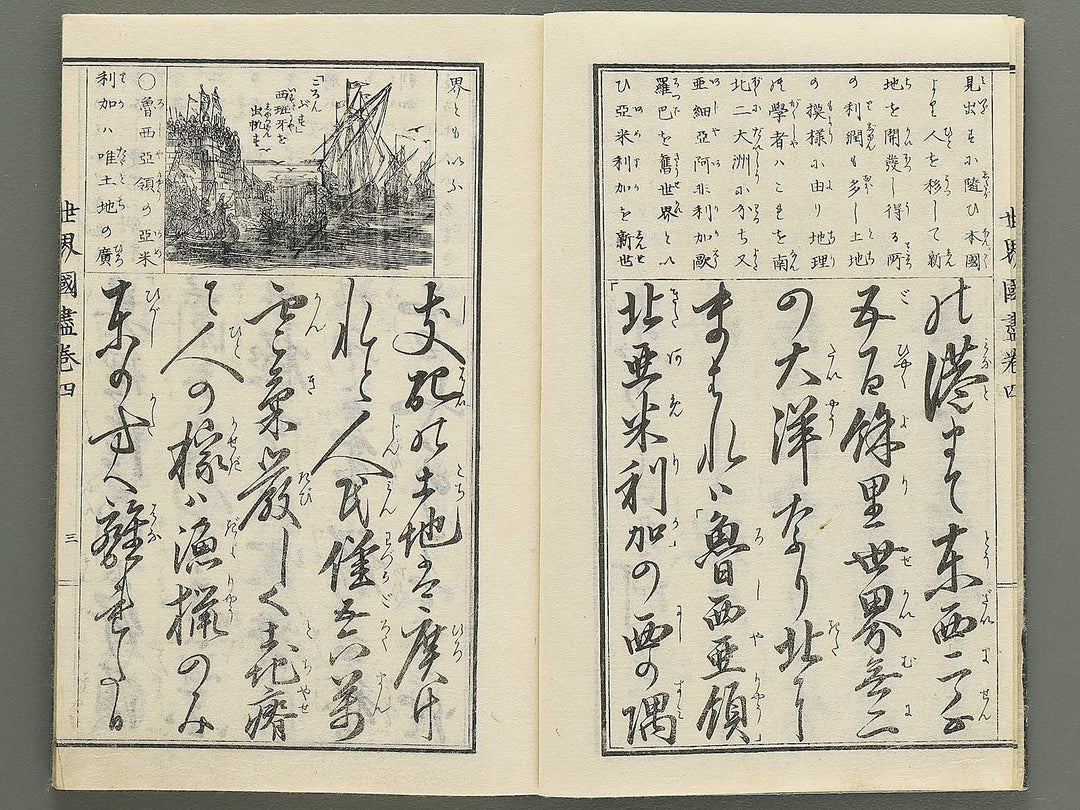 世界國盡巻四
見出すに隨ひ本國
より人を移して新
地を開發し得る所
の利潤も多し土地
の模様に由り地理
の學者ハこれを南
北二大洲に分ち又
亜細亜阿非利加歐
羅巴を舊世界とい
ひ亜米利加を新世
の港まで東西二千
五百餘里世界無二
の大洋なり北に
まはれハ「魯西亜領」
「北亜米利加」の西の隅
界ともいふ
「ころんぶす」
西班牙を
出帆す
○魯西亜領の亜米
利加ハ唯土地の廣
支配の土地は廣け
れど人民僅五六萬
寒氣嚴しく土地瘠
て人の稼ハ漁猟のみ
東の方へ離れたる
世界國盡巻四
三